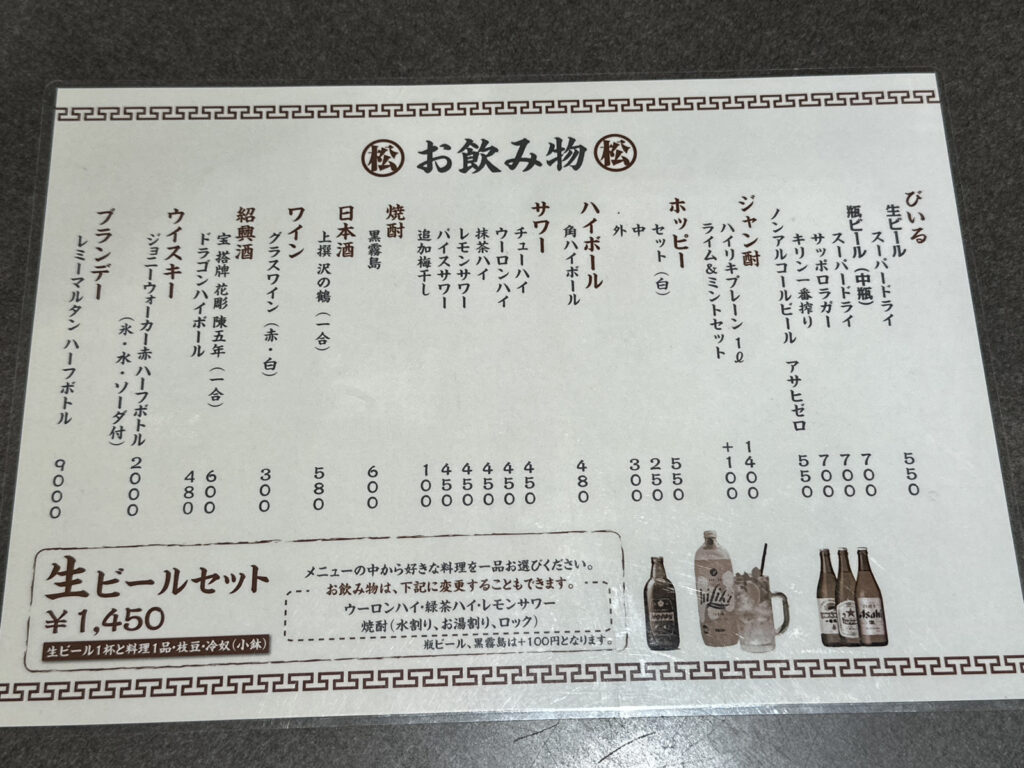 松 お飲み物 松
びいる
生ビール
スーパードライ 550
瓶ビール（中瓶）
スーパードライ 700
サッポロラガー 700
キリン一番搾り 700
ノンアルコールビール アサヒゼロ 550
ジャン酎
ハイリキプレーン 1ℓ 1400
ライム＆ミントセット +100
ホッピー
セット（白） 550
中 250
外 300
ハイボール
角ハイボール 480
サワー
チューハイ 450
ウーロンハイ 450
抹茶ハイ 450
レモンサワー 450
バイスサワー 450
追加梅干し 100
焼酎
黒霧島 600
日本酒
上撰 沢の鶴（一合） 580
ワイン
グラスワイン（赤・白） 300
紹興酒
宝 搭牌 花彫 陳五年（一合） 600
ドラゴンハイボール 480
ウイスキー
ジョニーウォーカー赤 ハーフボトル 2000
（氷・水・ソーダ付）
ブランデー
レミーマルタン ハーフボトル 9000
生ビールセット
¥1,450
生ビール1杯と料理1品・枝豆・冷奴(小鉢)
メニューの中から好きな料理を一品お選びください。
お飲み物は、下記に変更することもできます。
ウーロンハイ・緑茶ハイ・レモンサワー
焼酎(水割り、お湯割り、ロック)
瓶ビール、黒霧島は+100円となります。
Asahi